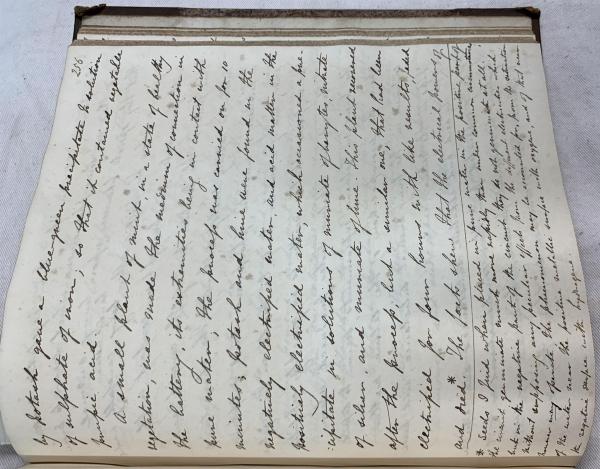 256
by potash gave a blue-green precipitate to solution
of sulphate of iron; so that it contained vegetable
prussic acid.
A small plant of mint, in a state of healthy
vegetation, was made the medium of connection in
the battery, its extremities being in contact with
pure water; the process was carried on for 10
minutes; potash and lime were found in the
negatively electrified water, and acid matter in the
positively electrified water, which occasioned a pre-
:cipitate in solutions of muriate of barytes, nitrate
of silver, and muriate of lime. This plant recovered
after the process; but a similar one, that had been
electrified for four hours with like results, faded
and died * The facts shew that the electrical powers of
* Seeds I find when placed in pure water in the positive part of
the circuit germinate much more rapidly than under common circumstances
but in the negative part of the circuit they do not germinate at all.
Without supposing any peculiar effects from the different electricities which
however may operate the phenomenon may be accounted for from the saturation
of the water near the positive metallic surface with oxygen, and of that near
the negative surface with hydrogen.